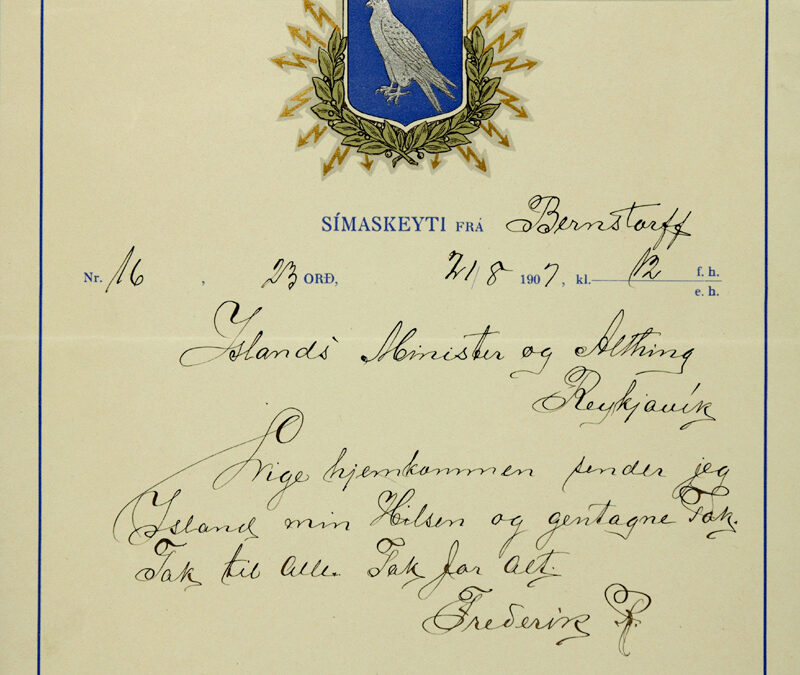 SÍMASKEYTI FRÁ Bernstorff
Nr. 16, 23 ORÐ, 21/8 1907, kl. 12 f. h.
e. h.
Islands Minister og Althing
Reykjavík
Lige hjemkommen sender jeg
Island min Hilsen og gentagne Tak.
Tak til Alle. Tak for Alt.
Frederik R.